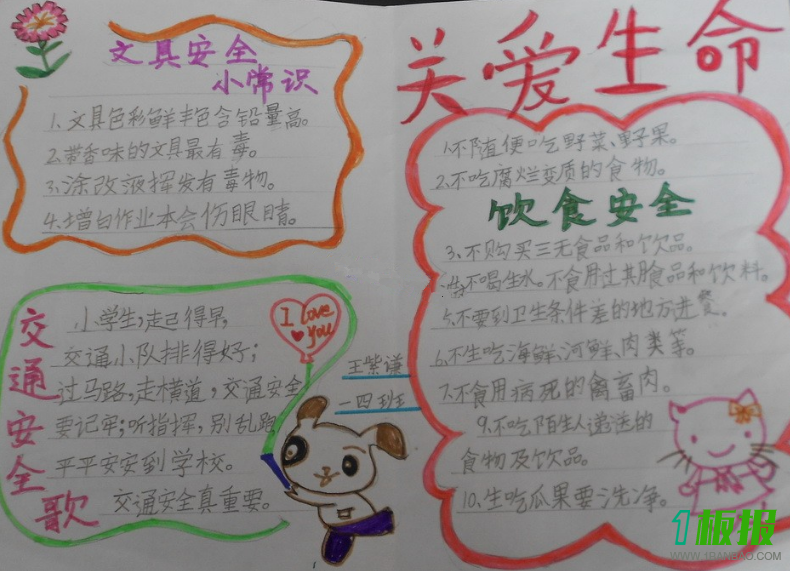 文具安全
小常识
1、文具色彩鲜丰色含铅量高。
2、带香味的文具最有毒。
3、涂改液挥发有毒物。
4、增白作业本会伤眼睛。
交通安全歌
小学生,起得早,
交通小队排得好;
过马路,走横道,交通安全
要记牢;听指挥,别乱跑
平平安安到学校。
交通安全真重要。
I love
you
王紫谦
一四班
关爱生命
1、不随便吃野菜、野果。
2、不吃腐烂变质的食物。
饮食安全
3、不购买三无食品和饮品。
不喝生水。不食用过其月食品和饮料。
5、不要到卫生条件差的地方进餐。
6、不生吃海鲜、河鲜、肉类等。
7、不食用病死的禽畜肉。
9、不吃陌生人递送的
食物及饮品。
10、生吃瓜果要洗净。
1板报
WWW.1BANBAO.COM